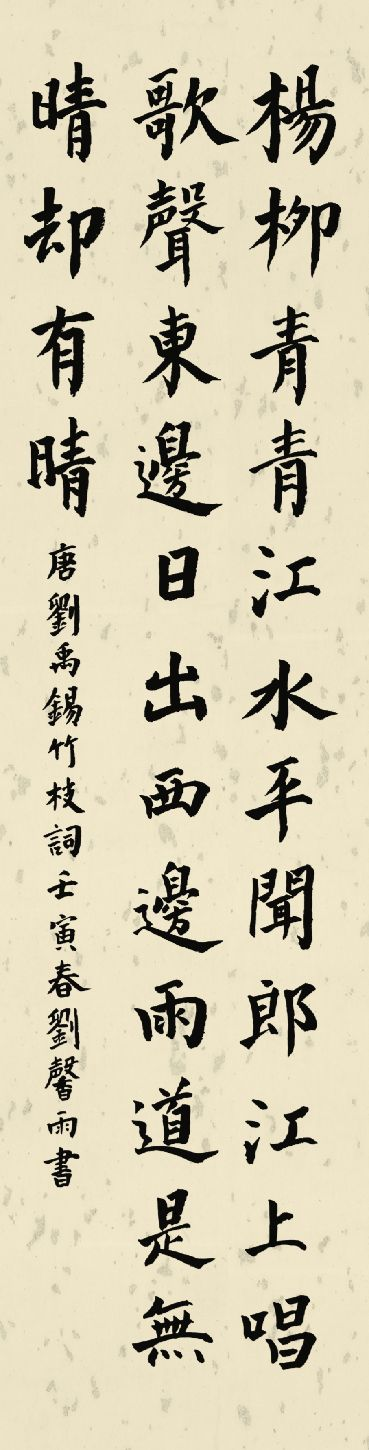 楊柳青青江水平聞郎江上唱
歌聲東邊日出西邊雨道是無
晴却有晴
唐劉禹錫竹枝詞壬寅春劉馨雨書